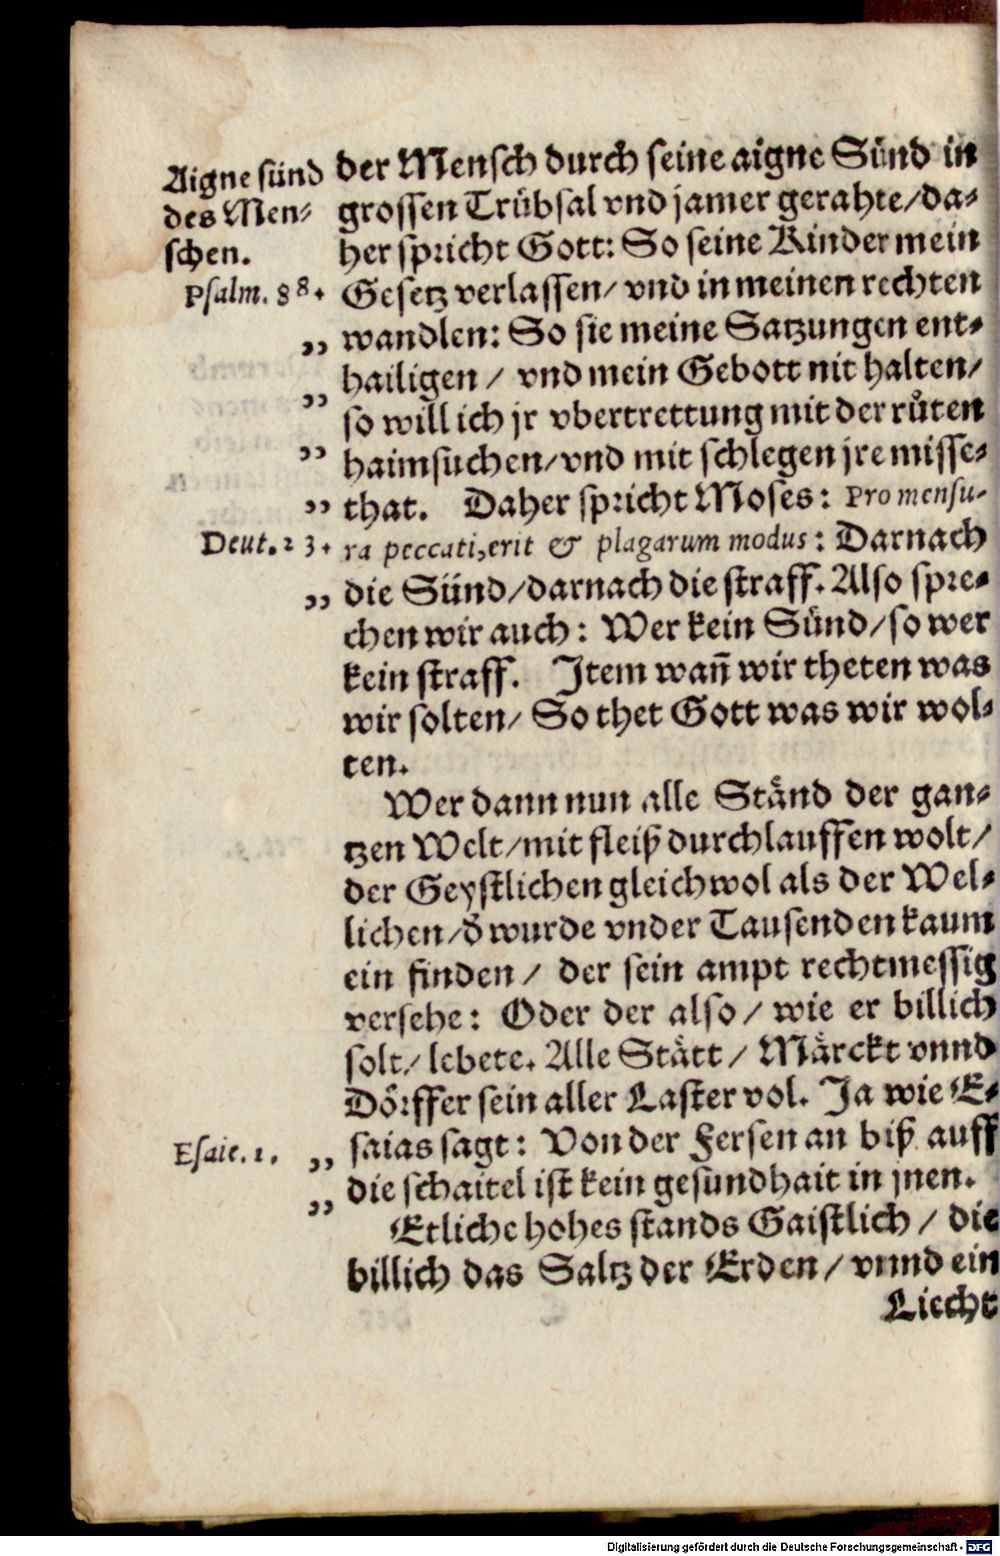 Aigne sünd
des Men⸗
schen.
Psalm. 88.
„
„
„
„
Deut. 23.
„
Esaie. 1.
„
„
der Mensch durch seine aigne Sünd in
grossen Trübsal vnd jamer gerahte/da⸗
her spricht Gott: So seine Kinder mein
Gesetz verlassen/ vnd in meinen rechten
wandlen: So sie meine Satzungen ent⸗
hailigen / vnd mein Gebott nit halten/
so will ich jr vbertrettung mit der růten
haimsuchen/vnd mit schlegen jre misse⸗
that. Daher spricht Moses: Pro mensu-
ra peccati,erit & plagarum modus: Darnach
die Sünd/darnach die straff. Also spre⸗
chen wir auch: Wer kein Sünd/so wer
kein straff. Item wañ wir theten was
wir solten/ So thet Gott was wir wol⸗
ten.
Wer dann nun alle Stånd der gan⸗
tzen Welt/mit fleiß durchlauffen wolt/
der Geystlichen gleich wol als der Wel⸗
lichen/d̕ wurde vnder Tausenden kaum
ein finden / der sein ampt rechtmessig
versehe: Oder der also / wie er billich
solt/ lebete. Alle Stått / Mårckt vnnd
Dôrffer sein aller Laster vol. Ja wie E⸗
saias sagt: Von der Fersen an biß auff
die schaitel ist kein gesundhait in jnen.
Etliche hohes stands Gaistlich / die
billich das Saltz der Erden / vnnd ein
Liecht
Digitalisierung gefördert durch die Deutsche Forschungsgemeinschaft - DFG